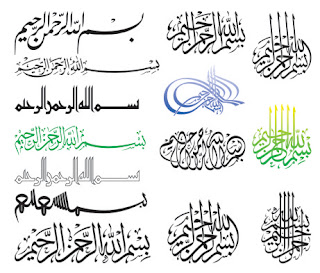 بسم الله الرحمن الرحيم
بسم الله الرحمن الرحيم
بسم الله الرحمن الرحيم
بسم الله الرحمن الرحيم
بسم الله الرحمن الرحيم
بسم الله الرحمن الرحيم
بسم الله الرحمن الرحيم
بسم الله الرحمن الرحيم
بسم الله الرحمن الرحيم
بسم الله الرحمن الرحيم
بسم الله الرحمن الرحيم
بسم الله الرحمن الرحيم
بسم الله الرحمن الرحيم
بسم الله الرحمن الرحيم